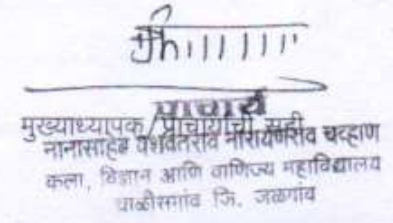 प्राचार्य
मुख्याध्यापक/प्राचार्यांची सही
नानासाहेब यशवंतराव नारायणराव चव्हाण
कला, विज्ञान आणि वाणिज्य महाविद्यालय
चाळीसगांव जि. जळगांव